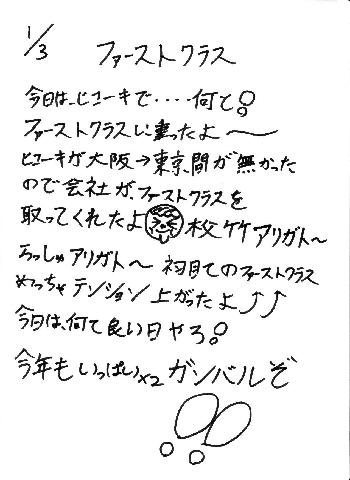 1/3
ファーストクラス
今日は、ヒコーキで・・・・何て!!
ファーストクラスに乗ったよ〜
ヒコーキが大阪→東京間が無かった
ので会社が、ファーストクラスを
取ってくれたよ アリガト〜
アリガト〜 初めてのファーストクラス
めっちゃテンション上がったよ↑↑
今日は、何て良い日やろ!!
今年もいっぱい×2ガンバルぞ
!!